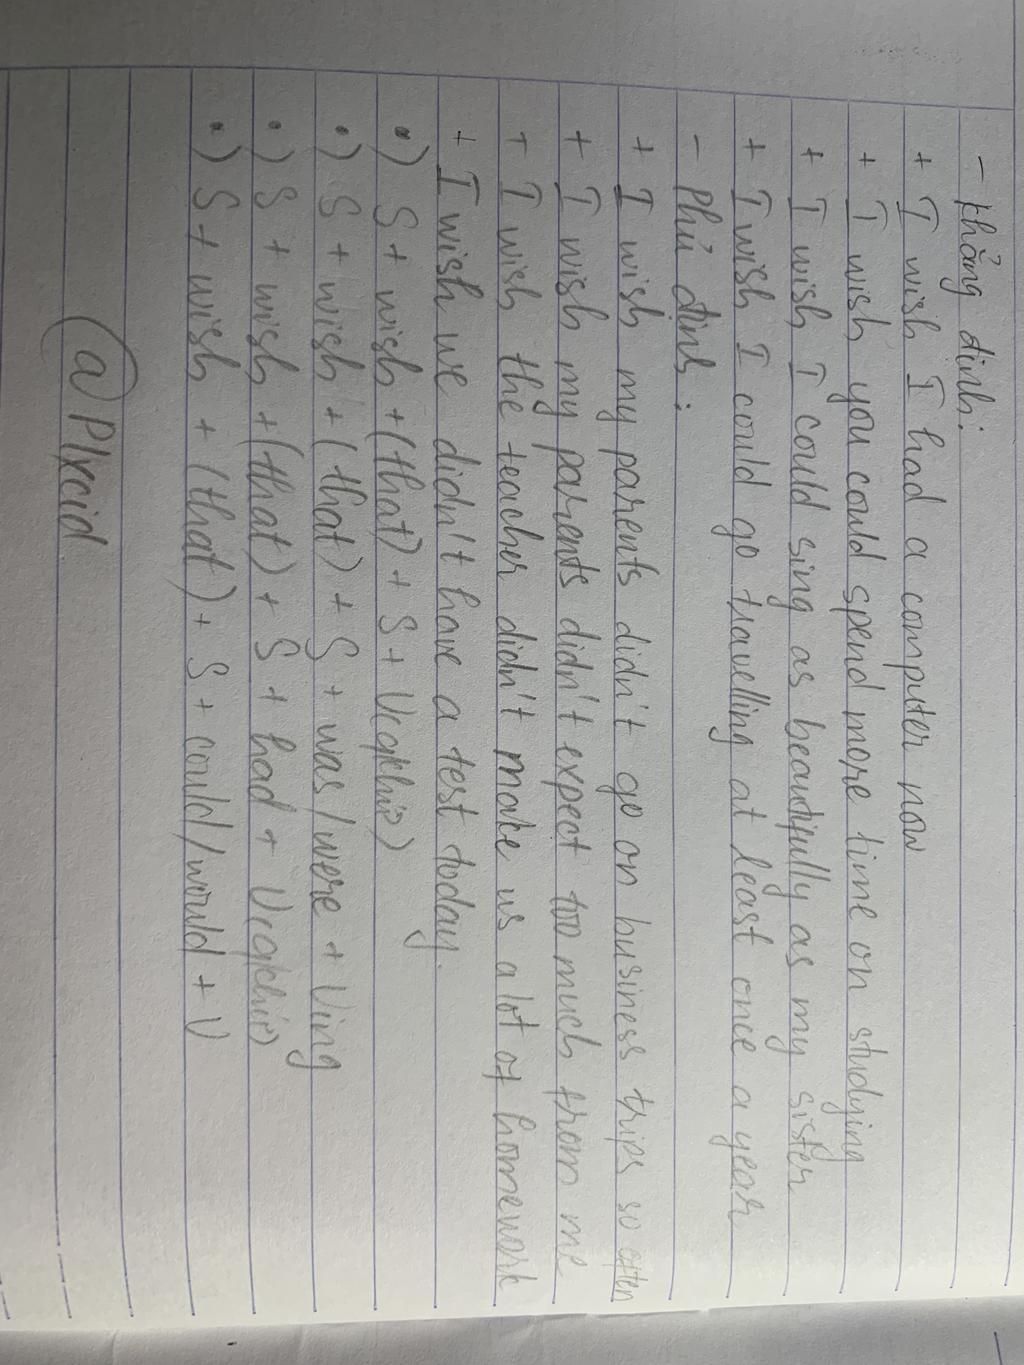 - khẳng định:
+ I wish I had a computer now
+ I wish you could spend more time on studying
+ I wish I could sing as beautifully as my sister
+ I wish I could go travelling at least once a year
- Phủ định:
+ I wish my parents didn't go on business trips so often
+ I wish my parents didn't expect too much from me
+ I wish the teacher didn't make us a lot of homework
+ I wish we didn't have a test today.
•) S + wish + (that) + S + V(qkhứ)
•) S + wish + (that) + S + was/were + Ving
•) S + wish + (that) + S + had + V(qkhứ)
•) S + wish + (that) + S + could/would + V